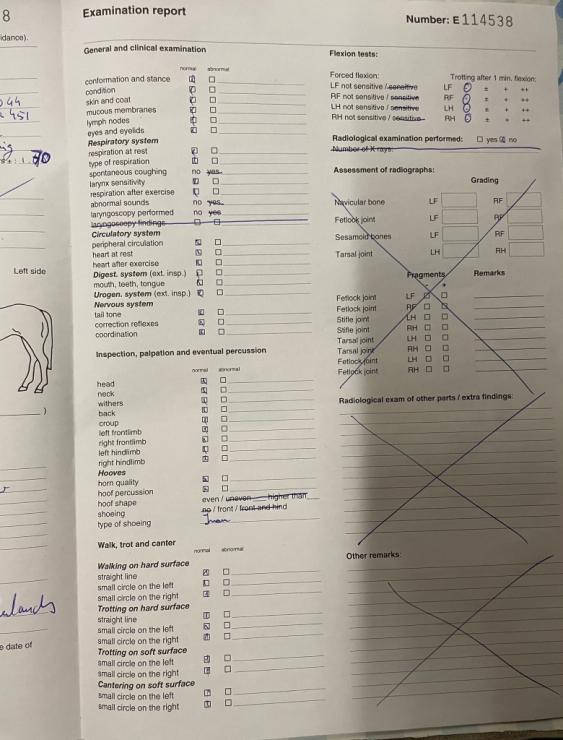 8
Examination report
Number: E 114538
idance).
General and clinical examination
normal abnormal
conformation and stance
condition
skin and coat
mucous membranes
lymph nodes
eyes and eyelids
Respiratory system
respiration at rest
type of respiration
spontaneous coughing no yes
larynx sensitivity
respiration after exercise
abnormal sounds no yes
laryngoscopy performed no yes
laryngoscopy findings
Circulatory system
peripheral circulation
heart at rest
heart after exercise
Digest. system (ext. insp.)
mouth, teeth, tongue
Urogen. system (ext. insp.)
Nervous system
tail tone
correction reflexes
coordination
Left side
Inspection, palpation and eventual percussion
normal abnormal
head
neck
withers
back
croup
left frontlimb
right frontlimb
left hindlimb
right hindlimb
Hooves
horn quality
hoof percussion
hoof shape even / uneven higher than
shoeing no / front / front and hind
type of shoeing
Walk, trot and canter
normal abnormal
Walking on hard surface
straight line
small circle on the left
small circle on the right
Trotting on hard surface
straight line
small circle on the left
small circle on the right
Trotting on soft surface
small circle on the left
small circle on the right
Cantering on soft surface
small circle on the left
small circle on the right
e date of
Flexion tests:
Forced flexion: Trotting after 1 min. flexion:
LF not sensitive / sensitive LF ± + ++
RF not sensitive / sensitive RF ± + ++
LH not sensitive / sensitive LH ± + ++
RH not sensitive / sensitive RH ± + ++
Radiological examination performed: yes no
Number of X rays:
Assessment of radiographs:
Grading
Navicular bone LF RF
Fetlock joint LF RF
Sesamoid bones LF RF
Tarsal joint LH RH
Fragments Remarks
- +
Fetlock joint LF
Fetlock joint RF
Stifle joint LH
Stifle joint RH
Tarsal joint LH
Tarsal joint RH
Fetlock joint LH
Fetlock joint RH
Radiological exam of other parts / extra findings:
Other remarks: